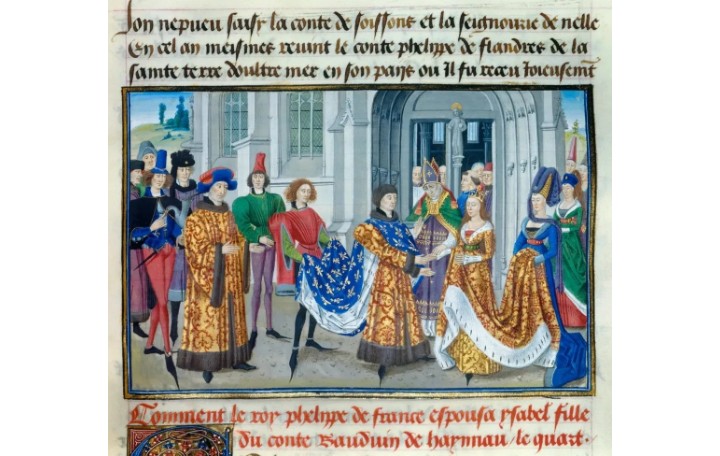 son nepueu saisy la conte de soissons et la seignourie de nelle
En cel an meismes reuint le conte phelippe de flandres de la
sainte terre doultre mer en son pays ou il fu receu Joieusemt
Comment le roy phelippe de france espousa ysabel fille
du conte Bauduin de haynnau / le quart.